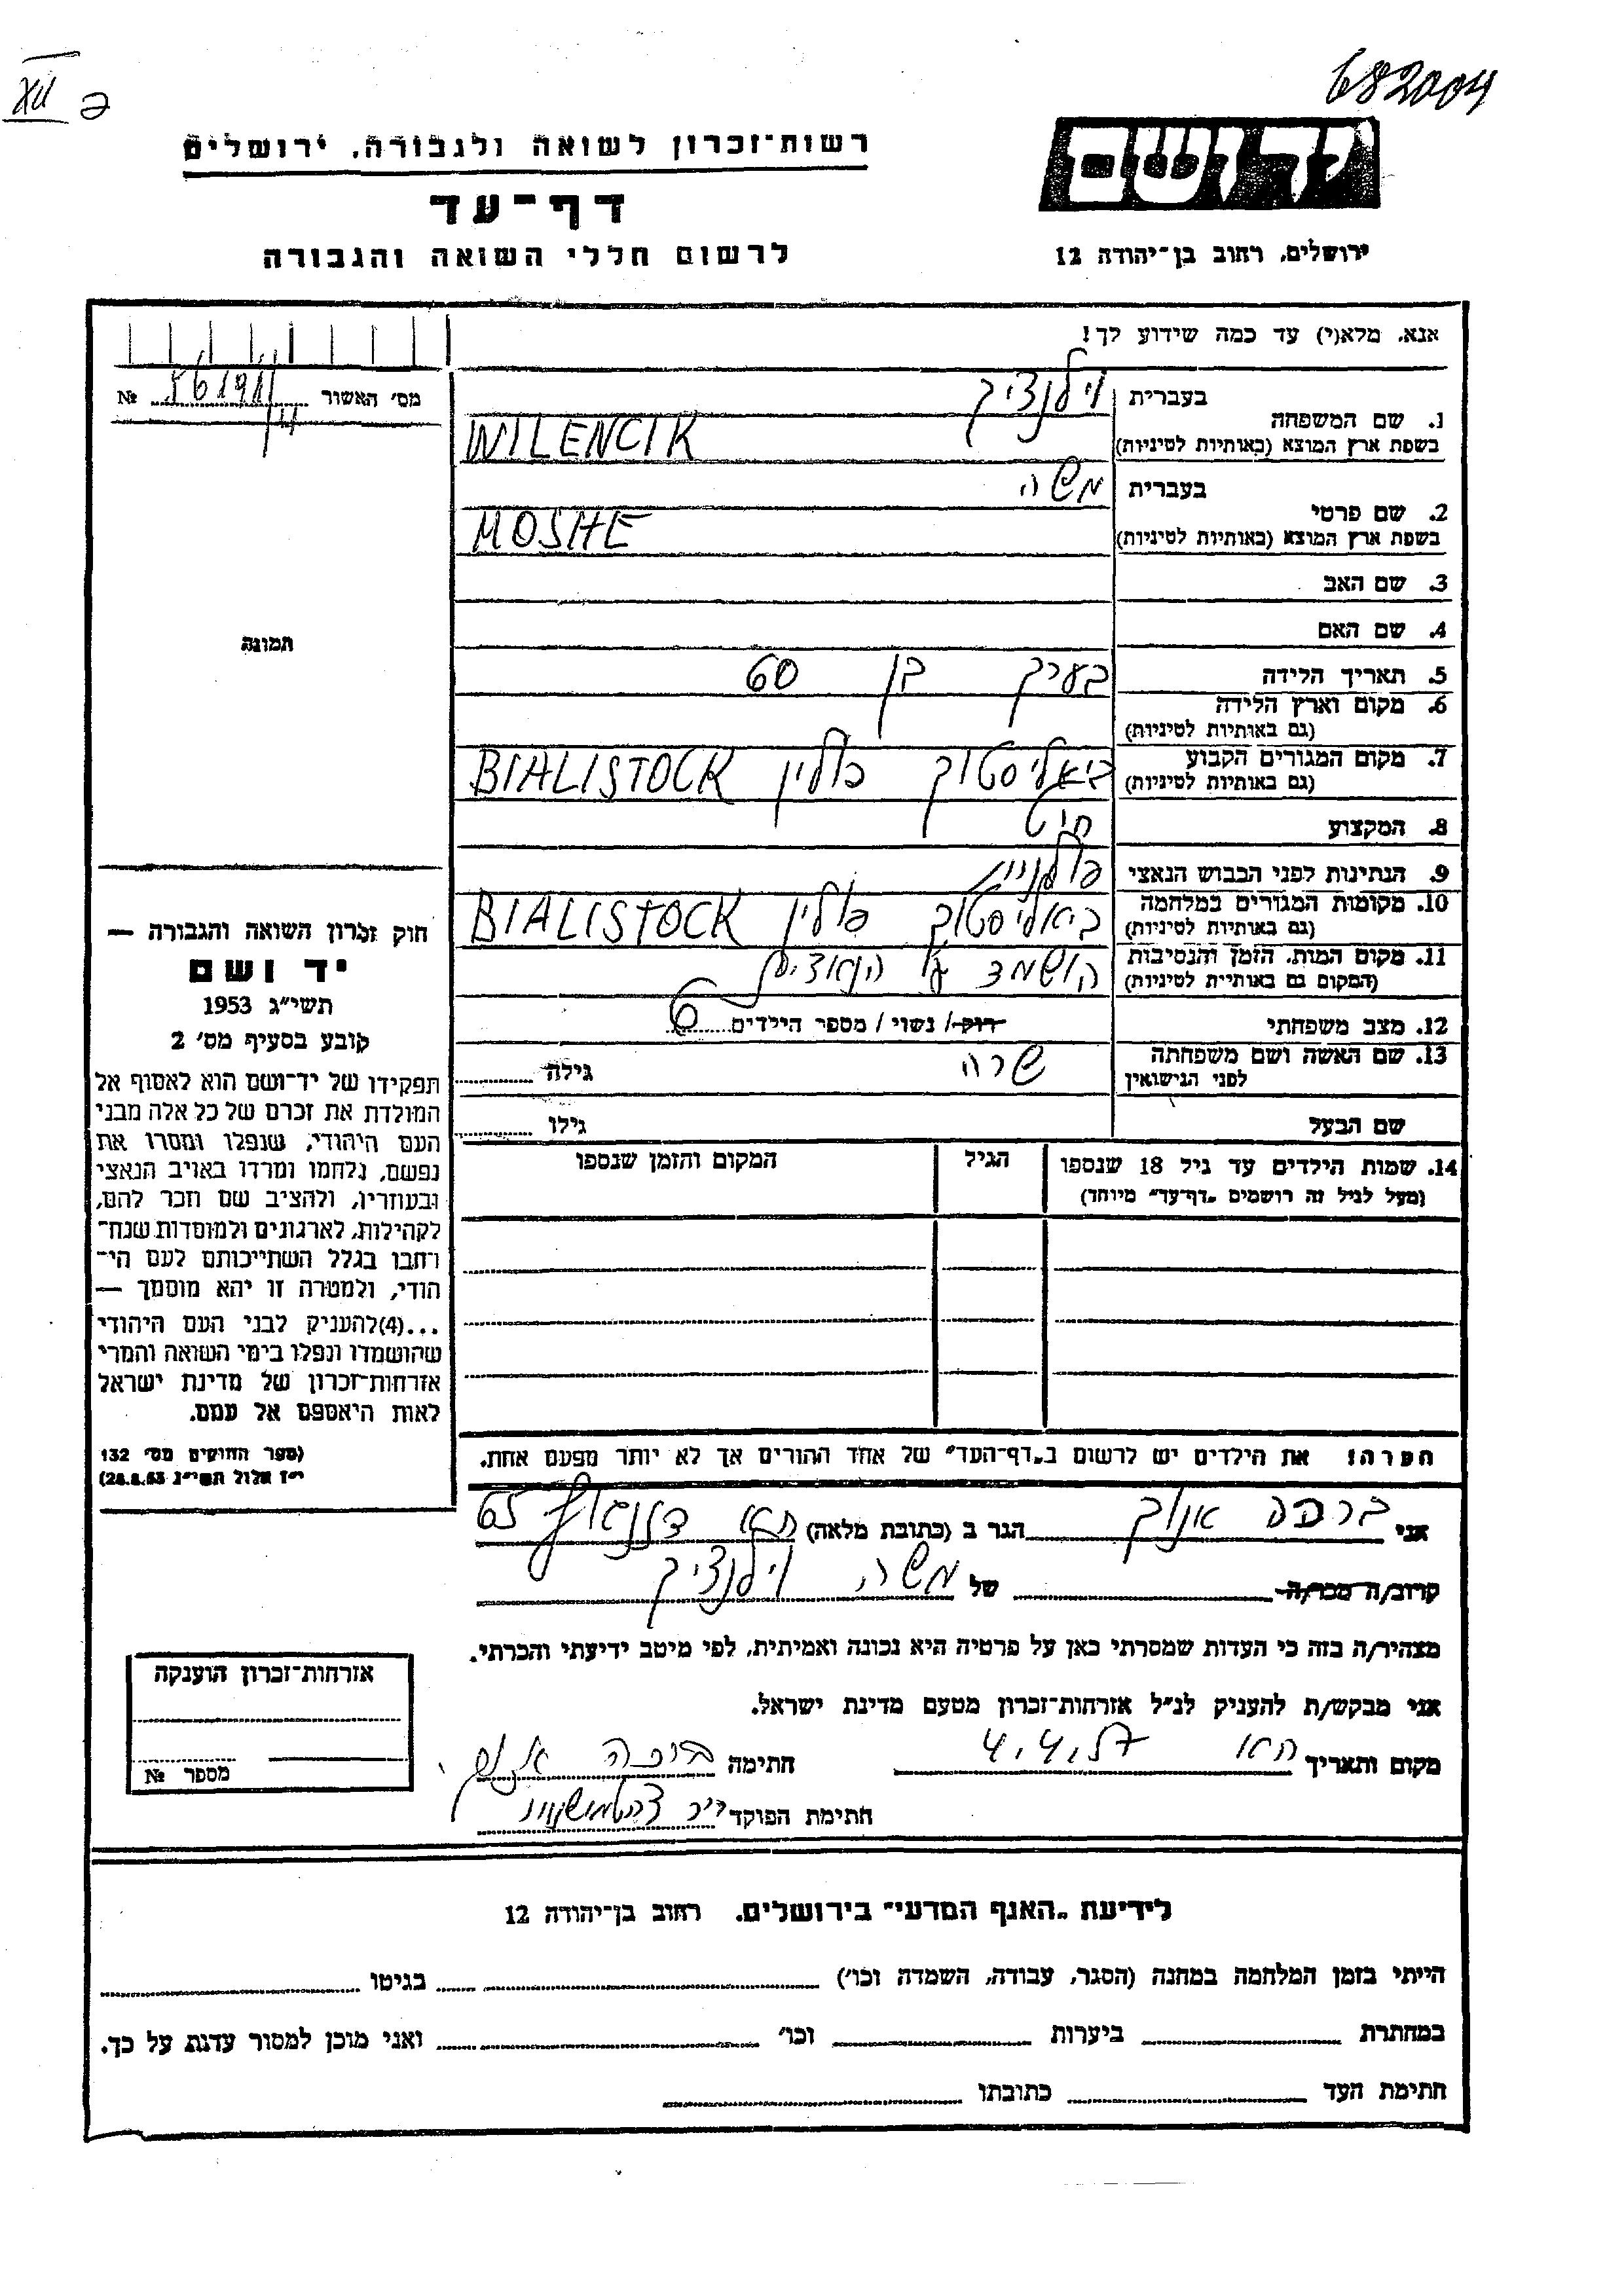 682004
XII
רשות־זכרון לשואה ולגבורה, ירושלים
יד ושם
דף־עד
לרשום חללי השואה והגבורה
ירושלים, רחוב בן־יהודה 12
אנא, מלא(י) עד כמה שידוע לך!
מס' האשור № 561911
14
1. שם המשפחה בעברית וילנציק
בשפת ארץ המוצא (באותיות לטיניות) WILENCIK
2. שם פרטי בעברית משה
בשפת ארץ המוצא (באותיות לטיניות) MOSHE
3. שם האב
4. שם האם
תמונה
5. תאריך הלידה בערך בן 60
6. מקום וארץ הלידה
(גם באותיות לטיניות)
7. מקום המגורים הקבוע ביאליסטוק פולין BIALISTOCK
(גם באותיות לטיניות)
8. המקצוע חיט
9. הנתינות לפני הכבוש הנאצי פולנית
10. מקומות המגורים במלחמה ביאליסטוק פולין BIALISTOCK
(גם באותיות לטיניות)
11. מקום המות, הזמן והנסיבות הושמד ע"י הנאצים
(המקום גם באותיות לטיניות)
12. מצב משפחתי רוק/ נשוי / מספר הילדים 6
13. שם האשה ושם משפחתה שרה גילה
לפני הנישואין
שם הבעל גילו
14. שמות הילדים עד גיל 18 שנספו הגיל המקום והזמן שנספו
(מעל לגיל זה רושמים „דף־עד" מיוחד)
חוק זכרון השואה והגבורה —
יד ושם
תשי"ג 1953
קובע בסעיף מס' 2
תפקידו של יד־ושם הוא לאסוף אל
המולדת את זכרם של כל אלה מבני
העם היהודי, שנפלו ומסרו את
נפשם, נלחמו ומרדו באויב הנאצי
ובעוזריו, ולהציב שם וזכר להם,
לקהילות, לארגונים ולמוסדות שנח־
רחבו בגלל השתייכותם לעם הי־
הודי, ולמטרה זו יהא מוסמך —
...(4)להעניק לבני העם היהודי
שהושמדו ונפלו בימי השואה והמרי
אזרחות־זכרון של מדינת ישראל
לאות היאספם אל עמם.
(ספר החוקים מס' 132
י"ז אלול תשי"ג 28.8.53)
הערה: את הילדים יש לרשום ב„דף־העד" של אחד ההורים אך לא יותר מפעם אחת.
אני ברכה הגר ב (כתובת מלאה) תא דיזנגוף 65
קרוב/ה מכר/ה של משה וילנציק
מצהיר/ה בזה כי העדות שמסרתי כאן על פרטיה היא נכונה ואמיתית, לפי מיטב ידיעתי והכרתי.
אני מבקש/ת להעניק לנ"ל אזרחות־זכרון מטעם מדינת ישראל.
מקום ותאריך תא 4.4.57 חתימה ברכה
חתימת הפוקד
אזרחות־זכרון הוענקה
מספר №
לידיעת „האגף המדעי" בירושלים, רחוב בן־יהודה 12
הייתי בזמן המלחמה במחנה (הסגר, עבודה, השמדה וכו') בגיטו
במחתרת ביערות וכו' ואני מוכן למסור עדות על כך.
חתימת העד כתובתו